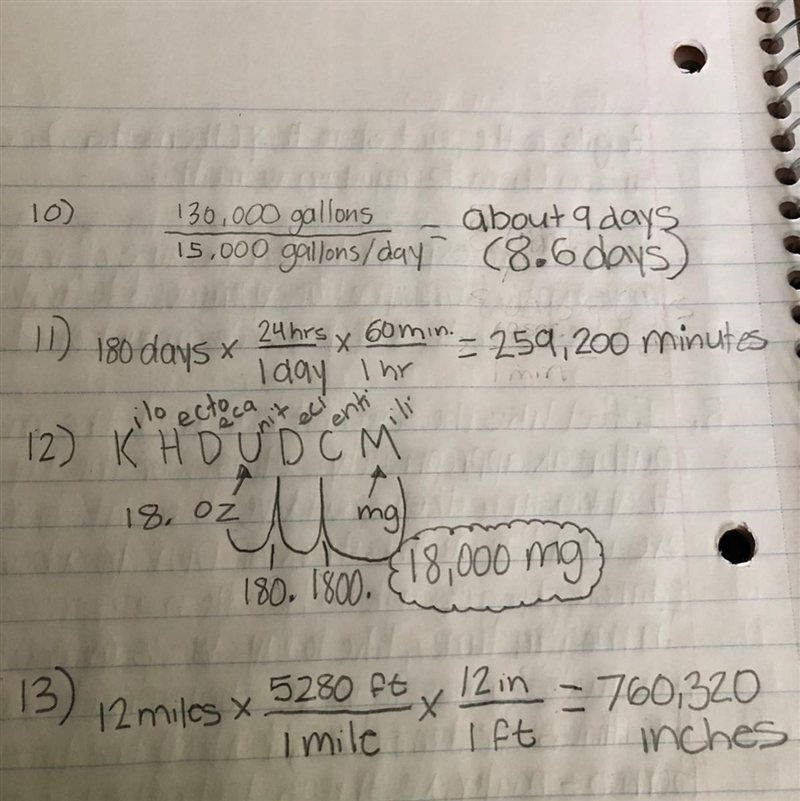 10) 130,000 gallons / 15,000 gallons/day = about 9 days
(8.6 days)
11) 180 days x 24 hrs / 1 day x 60 min. / 1 hr = 259,200 minutes
1 min
12) Kilo Hecto Deca Unit Deci Centi Mili
18. oz mg
180. 1800. 18,000 mg
13) 12 miles x 5280 ft / 1 mile x 12 in / 1 ft = 760,320
inches